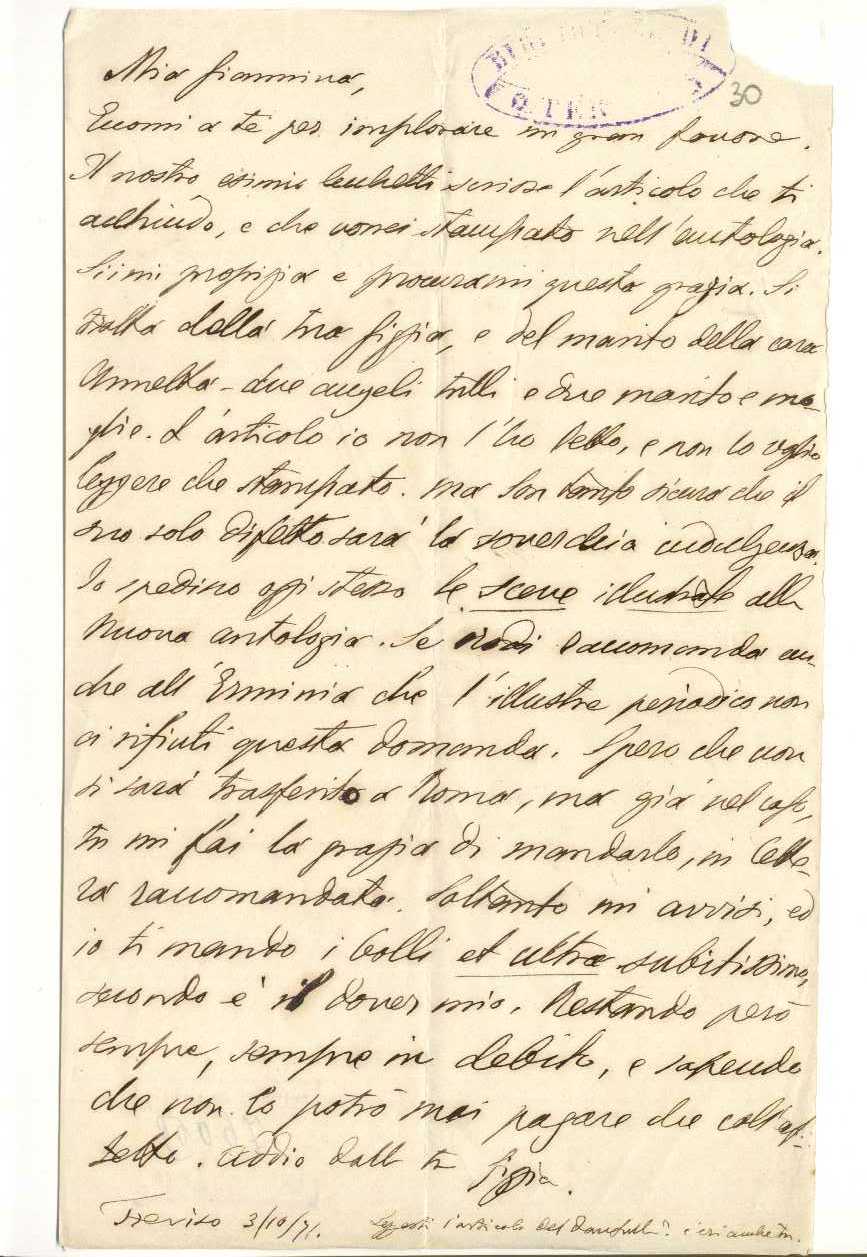 30
Mia Giannina,
Eccomi a te per implorare un gran favore.
Il nostro esimio scrisse l'articolo che ti
acchiudo, e che vorrei stampato nell'antologia.
Siimi propizia e procurami questa grazia. Si
tratta della tua Gigia, e del marito della cara
Annetta - due angeli tutti e due marito e mo-
glie. L'articolo io non l'ho letto, e non lo voglio
leggere che stampato. Ma son tanto sicura che il
suo solo difetto sarà la soverchia indulgenza.
Io spedirò oggi stesso le scene illustrate alla
Nuova antologia. Se raccomanda an-
che all'Erminia che l'illustre periodico non
ci rifiuti questa domanda. Spero che non
si sarà trasferito a Roma, ma già nel caso,
tu mi fai la grazia di mandarlo, in lette-
ra raccomandata. Soltanto mi avvisi, ed
io ti mando i bolli et ultra subitissimo,
secondo è il dover mio. Restando però
sempre, sempre in debito, e sapendo
che non lo potrò mai pagare che coll'af-
fetto. Addio dalla tua Gigia.
Treviso 3/10/71. l'articolo del c'eri anche tu.